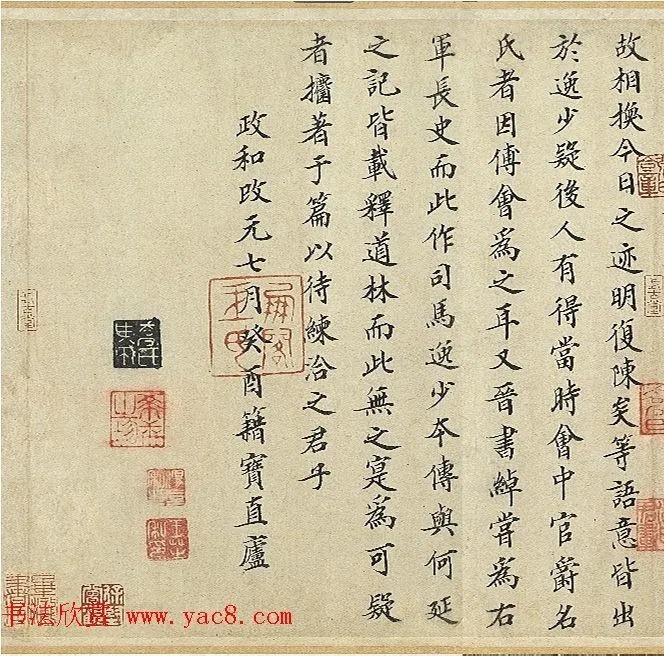 故相換今日之迹明復陳矣等語意皆出
於逸少疑後人有得當時會中官爵名
氏者因傅會為之耳又晉書綽嘗為右
軍長史而此作司馬逸少本傳與何延
之記皆載釋道林而此無之寔為可疑
者攟著于篇以待練洽之君乎
政和改元七月癸酉籍寶直廬
书法欣赏 www.yac8.com